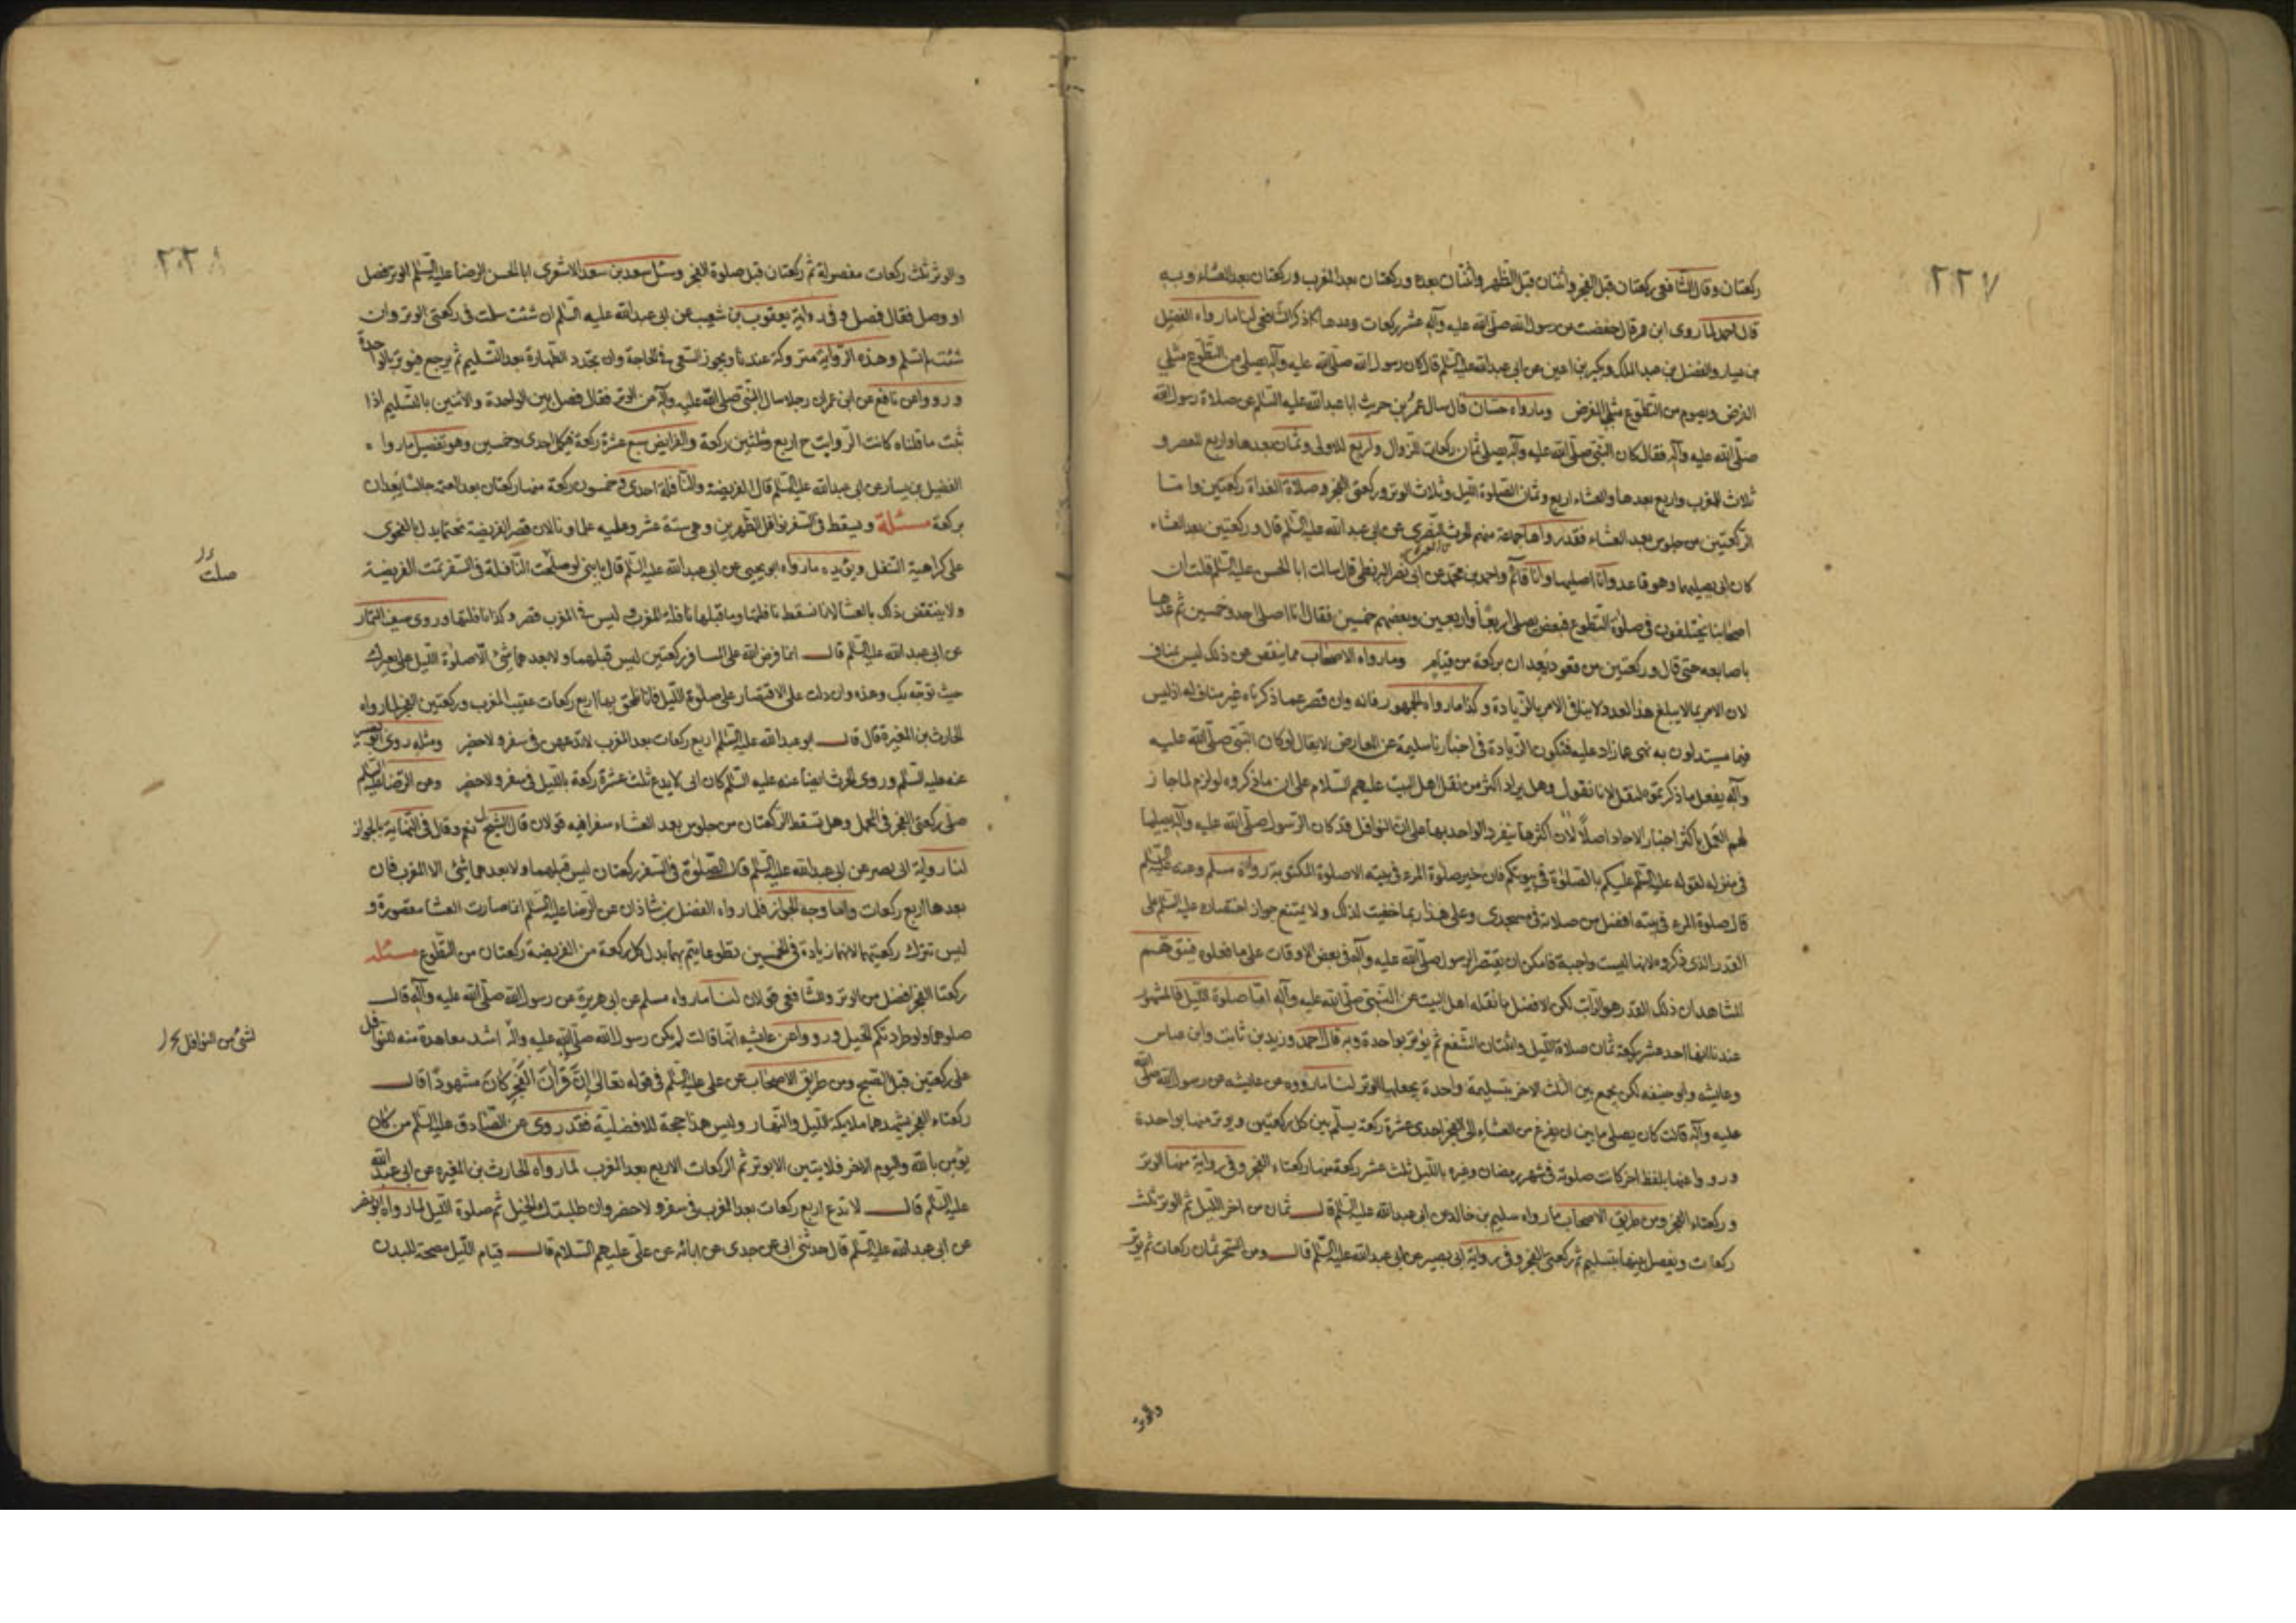 ٢٢٧
ركعتان وقال الشافعي ركعتان قبل الفجر واثنتان قبل الظهر واثنتان بعدها وركعتان بعد المغرب وركعتان بعد العشاء وبه
قال احمد لما روى ابن عمر قال حفظت من رسول الله صلى الله عليه وآله عشر ركعات وعدها كما ذكر الشافعي لنا ما رواه الفضيل
بن يسار والفضل بن عبد الملك وبكير بن اعين عن ابي عبد الله عليه السلم قال كان رسول الله صلى الله عليه وآله يصلي من التطوع مثلي
الفرض ويصوم من التطوع مثلي الفرض وما رواه حنان قال سال عمرو بن حريث ابا عبد الله عليه السلم عن صلاة رسول الله
صلى الله عليه وآله فقال كان النبي صلى الله عليه وآله يصلي ثمان ركعات الزوال واربع الاولى وثمان بعدها واربع العصر و
ثلاث المغرب واربع بعدها والعشاء اربع وثمان الصلوة الليل وثلاث الوتر وركعتي الفجر وصلاة الغداة ركعتين واما
الركعتين من جلوس بعد العشاء فقد رواها جماعة منهم الحرث النصري عن ابي عبد الله عليه السلم قال وركعتين بعد العشاء
كان ابي يصليهما وهو قاعد وانا اصليهما وانا قائم واحمد بن محمد عن ابي نصر البزنطي قال سالت ابا الحسن عليه السلم قلت ان
اصحابنا يختلفون في صلوة التطوع فبعض يصلي اربعا واربعين وبعضهم خمسين فقال انا اصلي احد وخمسين ثم عدها
باصابعه حتى قال وركعتين من قعود تعدان بركعة من قيام وما رواه الاصحاب مما ينقص عن ذلك ليس بمناف
لان الامر بما لا يبلغ هذا العدد لا ينافي الامر بالزيادة وكذا ما رواه الجمهور فانه وان قصر عما ذكرناه غير مناف له اذ ليس
فيما يستدلون به نهي عما زاد عليه فتكون الزيادة في اخبارنا سليمة عن المعارض لا يقال لو كان النبي صلى الله عليه
وآله يفعل ما ذكرتموه لنقل لانا نقول وهل يراد اكثر من نقل اهل البيت عليهم السلام على ان ما ذكروه لو لزم لما جاز
لهم العمل باكثر اخبار الاحاد اصلا لان اكثرها ينفرد الواحد بها على ان النوافل قد كان الرسول صلى الله عليه وآله يصليها
في منزله لقوله عليه السلم عليكم بالصلوة في بيوتكم فان خير صلوة المرء في بيته الا صلوة المكتوبة رواه مسلم وعنه عليه السلم
قال صلوة المرء في بيته افضل من صلاته في مسجدي وعلى هذا ربما خفيت لذلك ولا يمتنع جواز اقتصاره عليه السلم على
القدر الذي ذكروه لانها ليست واجبة فامكن ان يقتصر الرسول صلى الله عليه وآله في بعض الاوقات على ما فعلوه فيتوهم
المشاهد ان ذلك القدر هو الراتب لكن الافضل ما نقله اهل البيت عن النبي صلى الله عليه وآله اما صلوة الليل فالمشهور
عندنا انها احد عشر ركعة ثمان صلاة الليل واثنتان الشفع ثم يوتر بواحدة وبه قال احمد وزيد بن ثابت وابن عباس
وعايشه وابو حنيفه لكن يجمع بين الثلث الاخر بتسليمة واحدة يجعلها الوتر لنا ما رووه عن عايشه عن رسول الله صلى الله
عليه وآله قالت كان يصلي ما بين ان يفرغ من العشاء الى الفجر احدى عشرة ركعة يسلم بين كل ركعتين ويوتر منها بواحدة
ورووا عنها بلفظ اخر كانت صلوته في شهر رمضان وغيره بالليل ثلث عشر ركعة منها ركعتاء الفجر وفي رواية منها الوتر
وركعتاء الفجر ومن طريق الاصحاب ما رواه سليم بن خالد عن ابي عبد الله عليه السلم قال ثمان من اخر الليل ثم الوتر ثلث
ركعات ويفصل بينها بتسليم ثم ركعتي الفجر وفي رواية ابي بصير عن ابي عبد الله عليه السلم قال ومن السحر ثمان ركعات ثم يوتر
والوتر
٢٢٨
والوتر ثلث ركعات مفصولة ثم ركعتان قبل صلوة الفجر وسئل سعد بن سعد الاشعري ابا الحسن الرضا عليه السلم الوتر فصل
او وصل فقال فصل وفي رواية يعقوب بن شعيب عن ابي عبد الله عليه السلم ان شئت سلمت في ركعتي الوتر وان
شئت لم تسلم وهذه الرواية متروكة عندنا ويجوز السعي في الحاجة وان يجدد الطهارة بعد التسليم ثم يرجع فيوتر بالواحدة
ورووا عن نافع عن ابن عمران رجلا سال النبي صلى الله عليه وآله عن الوتر فقال فصل بين الواحدة والاثنين بالتسليم اذا
ثبت ما قلناه كانت الرواتب ح اربع وثلثين ركعة والفرايض سبع عشرة ركعة فيكمل احدى وخمسين وهو تفصيل ما رواه
الفضيل بن يسار عن ابي عبد الله عليه السلم قال الفريضة والنافلة احدى وخمسون ركعة منها ركعتان بعد العتمة جالسا تعدان
بركعة مسئلة ويسقط في السفر نوافل الظهرين وهي ستة عشر وعليه علماونا لان قصر الفريضة تحتما يدل بالفحوى
على كراهية التنفل ويؤيده ما رواه ابو يحيى عن ابي عبد الله عليه السلم قال يا بني لو صلحت النافلة في السفر تمت الفريضة
صلت
ولا ينتقض ذلك بالعشا لانا نسقط نافلتها وما قبلها نافلة المغرب وليس في المغرب قصر وكذا نافلتها وروى سيف التمار
عن ابي عبد الله عليه السلم قال انما فرض الله على المسافر ركعتين ليس قبلهما ولا بعدهما شيء الا صلوة الليل على بعيرك
حيث توجه بك وهذه وان دلت على الاقتصار على صلوة الليل فانا نلحق بها اربع ركعات عقيب المغرب وركعتين الفجر لما رواه
الحارث بن المغيرة قال قال ابو عبد الله عليه السلم اربع ركعات بعد المغرب لا تدعهن في سفر ولا حضر ومثله روى ابو بصير
عنه عليه السلم وروى الحرث ايضا عنه عليه السلم كان ابي لا يدع ثلث عشرة ركعة بالليل في سفر ولا حضر وعن الرضا عليه السلم
صلى ركعتي الفجر في المحمل وهل تسقط الركعتان من جلوس بعد العشاء سفرا فيه قولان قال الشيخ نعم وقال في النهاية بالجواز
لنا رواية ابي بصير عن ابي عبد الله عليه السلم قال الصلوة في السفر ركعتان ليس قبلهما ولا بعدهما شئ الا المغرب فان
بعدها اربع ركعات واما وجه الجواز فلما رواه الفضل بن شاذان عن الرضا عليه السلم انما صارت العشا مقصورة و
ليس تترك ركعتيها لانهما زيادة في الخمسين تطوعا ليتم بهما بدل كل ركعة من الفريضة ركعتان من التطوع مسئله
ركعتا الفجر افضل من الوتر وللشافعي قولان لنا ما رواه مسلم عن ابي هريرة عن رسول الله صلى الله عليه وآله قال
صلوهما ولو طاردتكم الخيل ورووا عن عايشه انها قالت لم يكن رسول الله صلى الله عليه وآله اشد معاهدة منه للنوافل
لشئ من النوافل
على ركعتين قبل الصبح ومن طريق الاصحاب عن علي عليه السلم في قوله تعالى إن قرآن الفجر كان مشهودا قال
ركعتاء الفجر يشهدهما ملايكة الليل والنهار وليس هذا حجة للافضلية فقد روى عن الصادق عليه السلم من كان
يؤمن بالله واليوم الاخر فلا يبيتن الا بوتر ثم الركعات الاربع بعد المغرب لما رواه الحارث بن المغيره عن ابي عبد الله
عليه السلم قال لا تدع اربع ركعات بعد المغرب في سفر ولا حضر وان طلبتك الخيل ثم صلوة الليل لما رواه
عن ابي عبد الله عليه السلم قال حدثني ابي عن جدي عن ابائه عن علي عليهم السلام قال قيام الليل مصحة للبدن